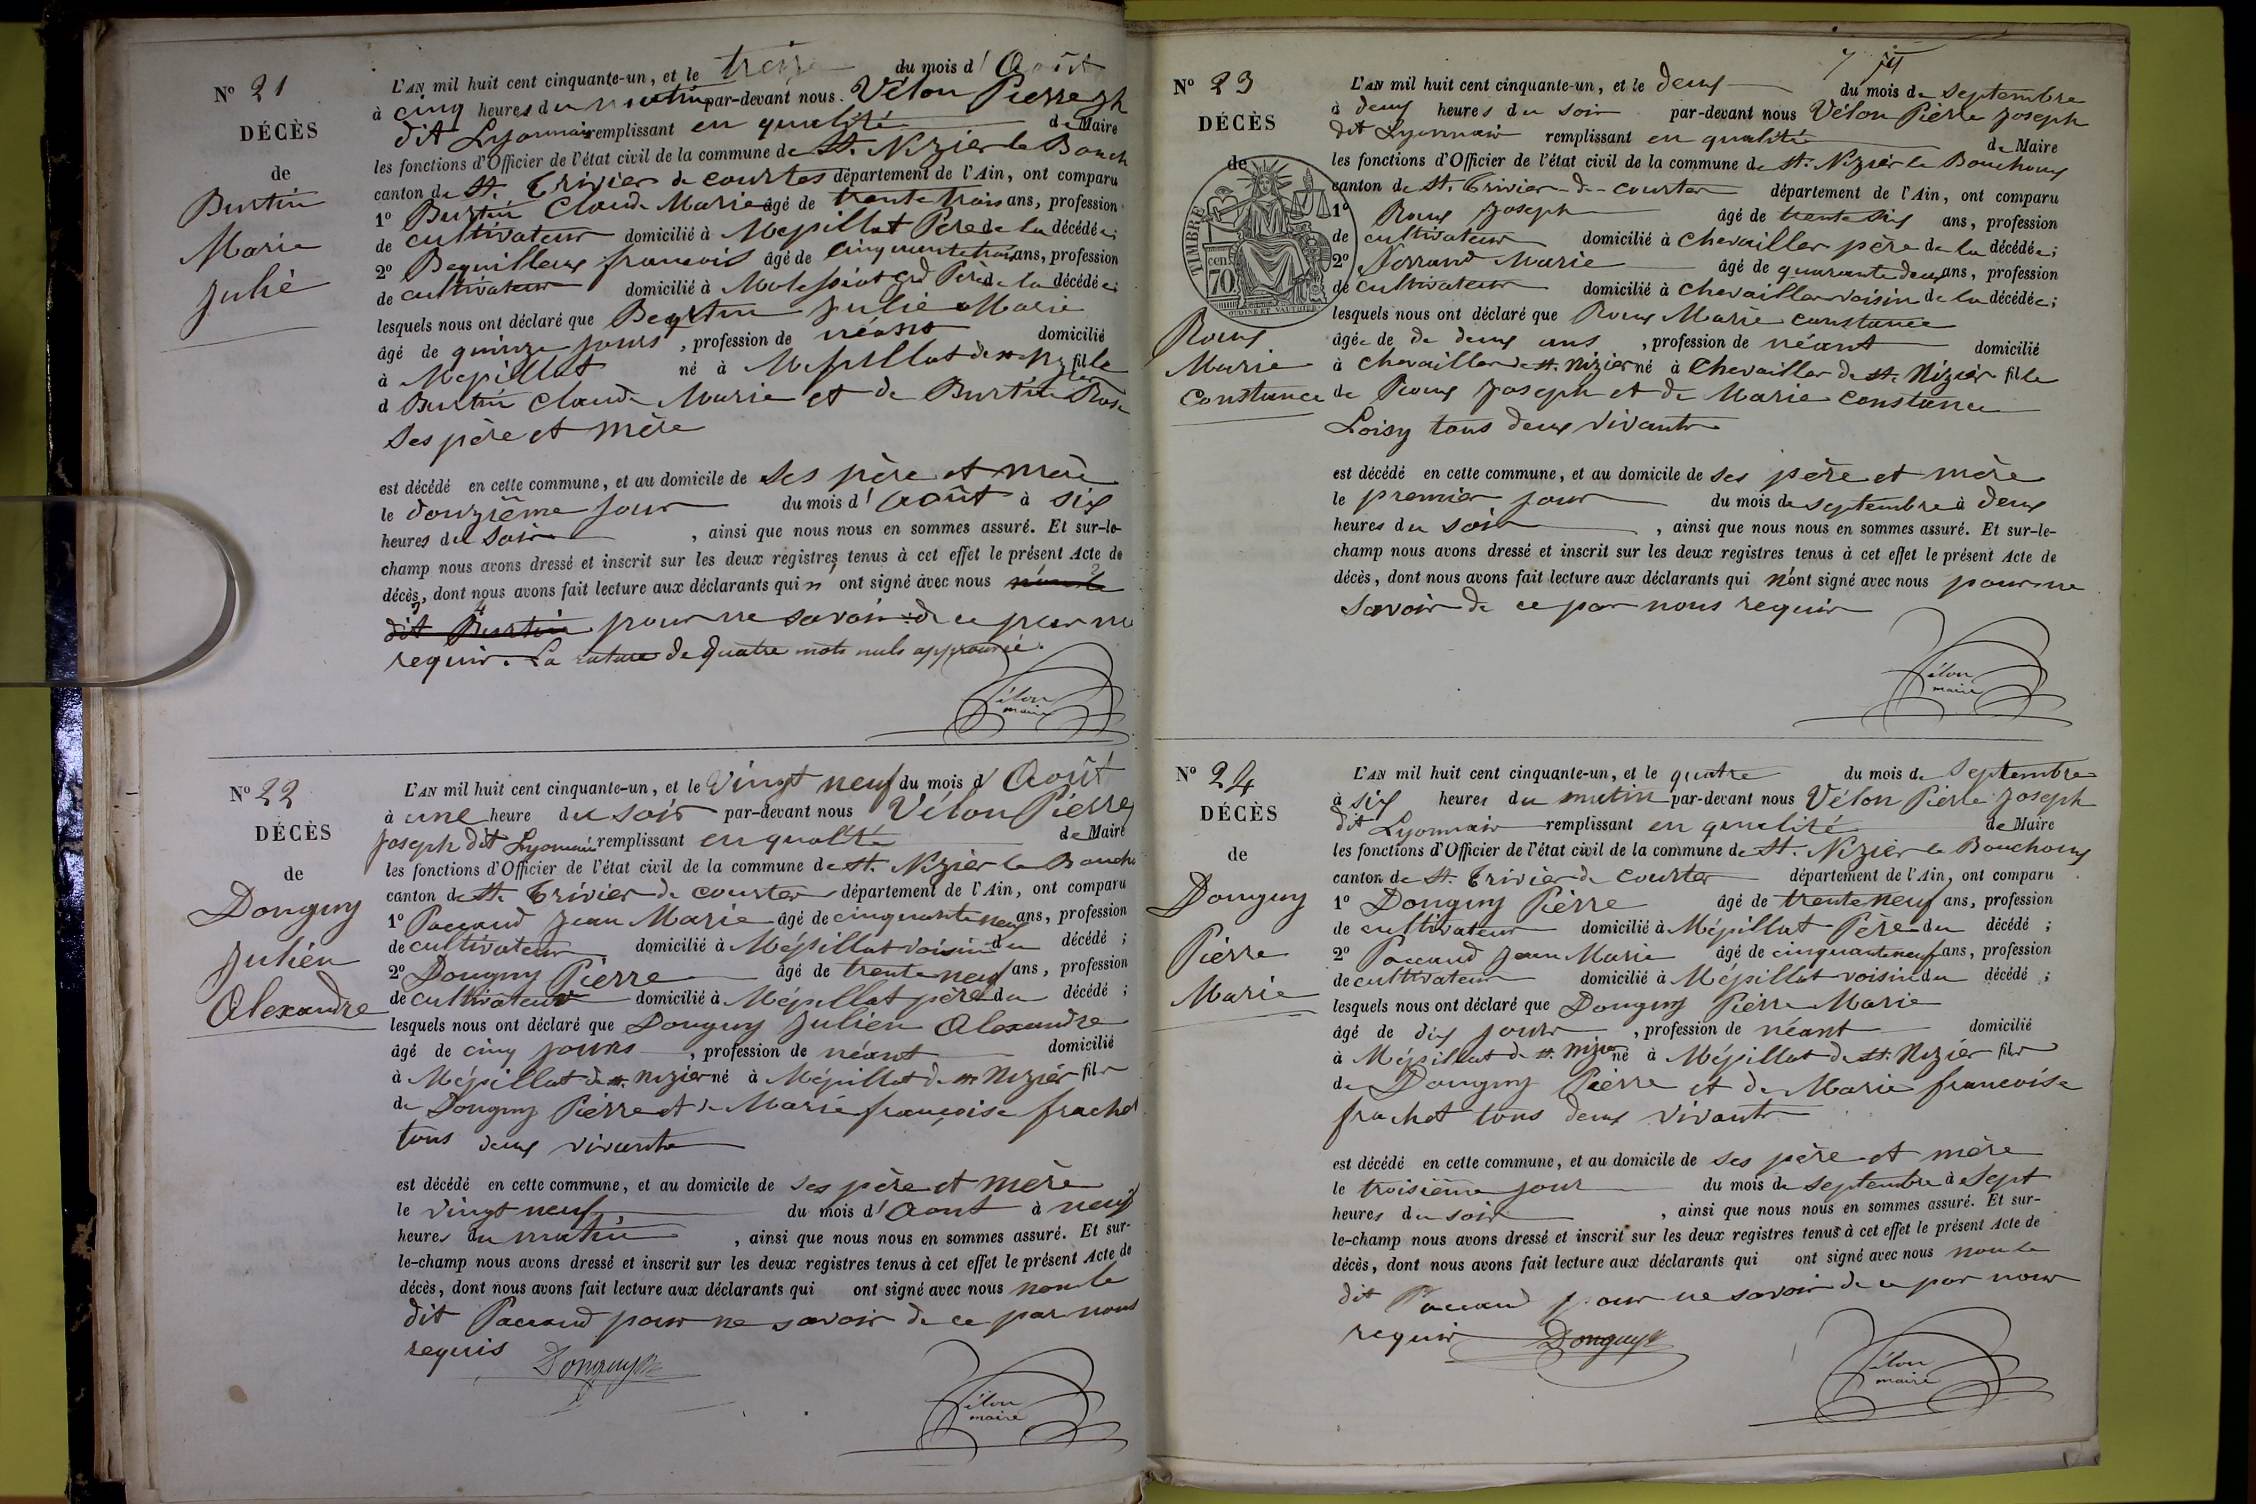 N° 21
DÉCÈS
de
Burtin
Marie
Julie
L'AN mil huit cent cinquante-un, et le treize du mois d'Août
à cinq heures du matin par-devant nous Vélon Pierre Jh
dit Lyonnais remplissant en qualité de Maire
les fonctions d'Officier de l'état civil de la commune de St. Nizier le Bouch
canton de St. Trivier de courtes département de l'Ain, ont comparu
1° Burtin Claude Marie âgé de trente trois ans, profession
de cultivateur domicilié à Mepillat Père de la décédée;
2° Bequilleux francois âgé de cinquante trois ans, profession
de cultivateur domicilié à Grd Père de la décédée;
lesquels nous ont déclaré que Burtin Julie Marie
âgé de quinze jours, profession de néant domicilié
à Mepillat né à Mepillat de st. Nz fille
d Burtin Claude Marie et de Burtin Rose
Ses père et mère
est décédé en cette commune, et au domicile de ses père et mère
le douzième jour du mois d'août à six
heures du soir, ainsi que nous nous en sommes assuré. Et sur-le-
champ nous avons dressé et inscrit sur les deux registres tenus à cet effet le présent Acte de
décès, dont nous avons fait lecture aux déclarants qui n'ont signé avec nous
dit Burtin pour ne savoir de ce par nous
requir. La rature de quatre mots nuls approuvé.
Vélon
maire
N° 22
DÉCÈS
de
Donguy
Julien
Alexandre
L'AN mil huit cent cinquante-un, et le Vingt neuf du mois d'Août
à une heure du soir par-devant nous Vélon Pierre
Joseph dit Lyonnais remplissant en qualité de Maire
les fonctions d'Officier de l'état civil de la commune de St. Nizier le Bouche
canton de St. Trivier de courtes département de l'Ain, ont comparu
1° Paccaud Jean Marie âgé de cinquante neuf ans, profession
de cultivateur domicilié à Mépillat voisin du décédé;
2° Donguy Pierre âgé de trente neuf ans, profession
de cultivateur domicilié à Mépillat père du décédé;
lesquels nous ont déclaré que Donguy Julien Alexandre
âgé de cinq jours, profession de néant domicilié
à Mépillat de st. Nizier né à Mépillat de st. Nizier fils
de Donguy Pierre et de Marie françoise frachet
tous deux vivants
est décédé en cette commune, et au domicile de ses père et mère
le vingt neuf du mois d'Aout à neuf
heures du matin, ainsi que nous nous en sommes assuré. Et sur-
le-champ nous avons dressé et inscrit sur les deux registres tenus à cet effet le présent Acte de
décès, dont nous avons fait lecture aux déclarants qui ont signé avec nous non le
dit Paccaud pour ne savoir de ce par nous
requis Donguy
Vélon
maire
N° 23
DÉCÈS
de
TIMBRE
cen.
70
OUDINÉ ET VAUTHIER
Roux
Marie
Constance
L'AN mil huit cent cinquante-un, et le deux du mois de septembre
à deux heures du soir par-devant nous Vélon Pierre Joseph
dit Lyonnais remplissant en qualité de Maire
les fonctions d'Officier de l'état civil de la commune de St. Nizier le Bouchoux
canton de St. Trivier de courtes département de l'Ain, ont comparu
1° Roux Joseph âgé de trente six ans, profession
de cultivateur domicilié à chevailler père de la décédée;
2° Marie âgé de quarante deux ans, profession
de cultivateur domicilié à chevailler voisin de la décédée;
lesquels nous ont déclaré que Roux Marie constance
âgée de de deux ans, profession de néant domicilié
à chevailler de st. Nizier né à chevailler de st. Nizier fille
de Roux Joseph et de Marie constance
Loisy tous deux vivants
est décédé en cette commune, et au domicile de ses père et mère
le premier jour du mois de septembre à deux
heures du soir, ainsi que nous nous en sommes assuré. Et sur-le-
champ nous avons dressé et inscrit sur les deux registres tenus à cet effet le présent Acte de
décès, dont nous avons fait lecture aux déclarants qui n'ont signé avec nous pour ne
savoir de ce par nous requir
Vélon
maire
N° 24
DÉCÈS
de
Donguy
Pierre
Marie
L'AN mil huit cent cinquante-un, et le quatre du mois de Septembre
à six heures du matin par-devant nous Vélon Pierre Joseph
dit Lyonnais remplissant en qualité de Maire
les fonctions d'Officier de l'état civil de la commune de St. Nizier le Bouchoux
canton de St. Trivier de courtes département de l'Ain, ont comparu
1° Donguy Pierre âgé de trente neuf ans, profession
de cultivateur domicilié à Mépillat Père du décédé;
2° Paccaud Jean Marie âgé de cinquante neuf ans, profession
de cultivateur domicilié à Mépillat voisin du décédé;
lesquels nous ont déclaré que Donguy Pierre Marie
âgé de dix jours, profession de néant domicilié
à Mépillat de st. Nizier né à Mépillat de st. Nizier fils
de Donguy Pierre et de Marie francoise
frachet tous deux vivants
est décédé en cette commune, et au domicile de ses père et mère
le troisième jour du mois de septembre à sept
heures du soir, ainsi que nous nous en sommes assuré. Et sur-
le-champ nous avons dressé et inscrit sur les deux registres tenus à cet effet le présent Acte de
décès, dont nous avons fait lecture aux déclarants qui ont signé avec nous non le
dit Paccaud pour ne savoir de ce par nous
requir Donguy
Vélon
maire